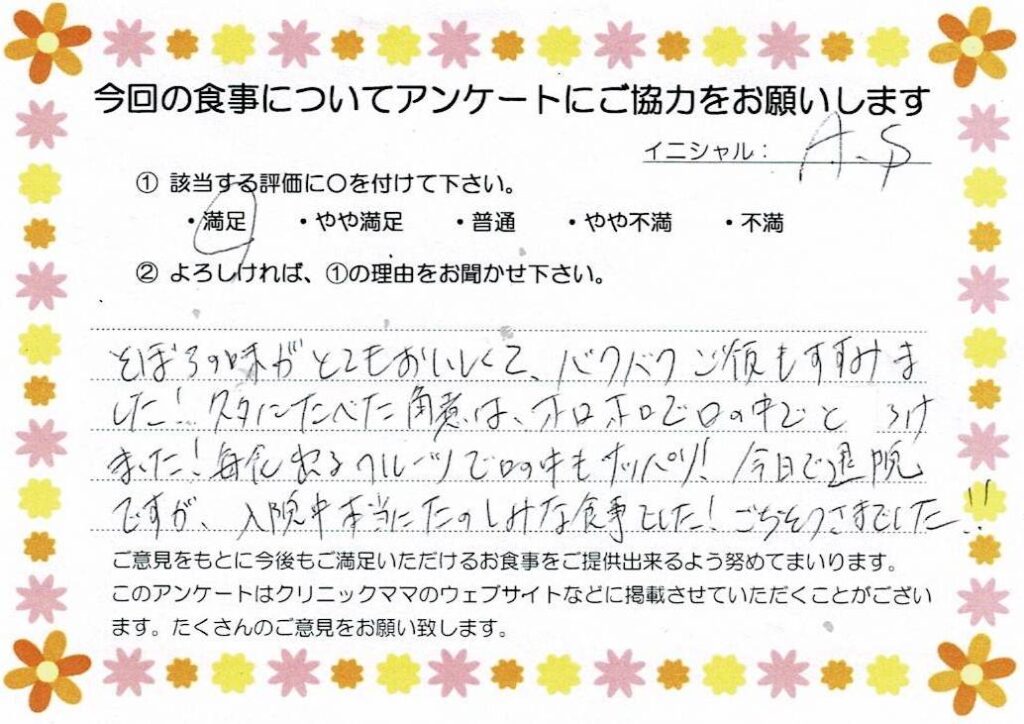 今回の食事についてアンケートにご協力をお願いします
イニシャル： A.S
① 該当する評価に〇を付けて下さい。
・満足 ・やや満足 ・普通 ・やや不満 ・不満
② よろしければ、①の理由をお聞かせ下さい。
そぼろの味がとてもおいしくて、バクバクご飯もすすみま
した! 夕食にたべた角煮は、ホロホロで口の中でとろけ
ました! 毎食出るフルーツで口の中もサッパリ! 今日で退院
ですが、入院中本当にたのしみな食事でした! ごちそうさまでした!!
ご意見をもとに今後もご満足いただけるお食事をご提供出来るよう努めてまいります。
このアンケートはクリニックママのウェブサイトなどに掲載させていただくことがござい
ます。たくさんのご意見をお願い致します。